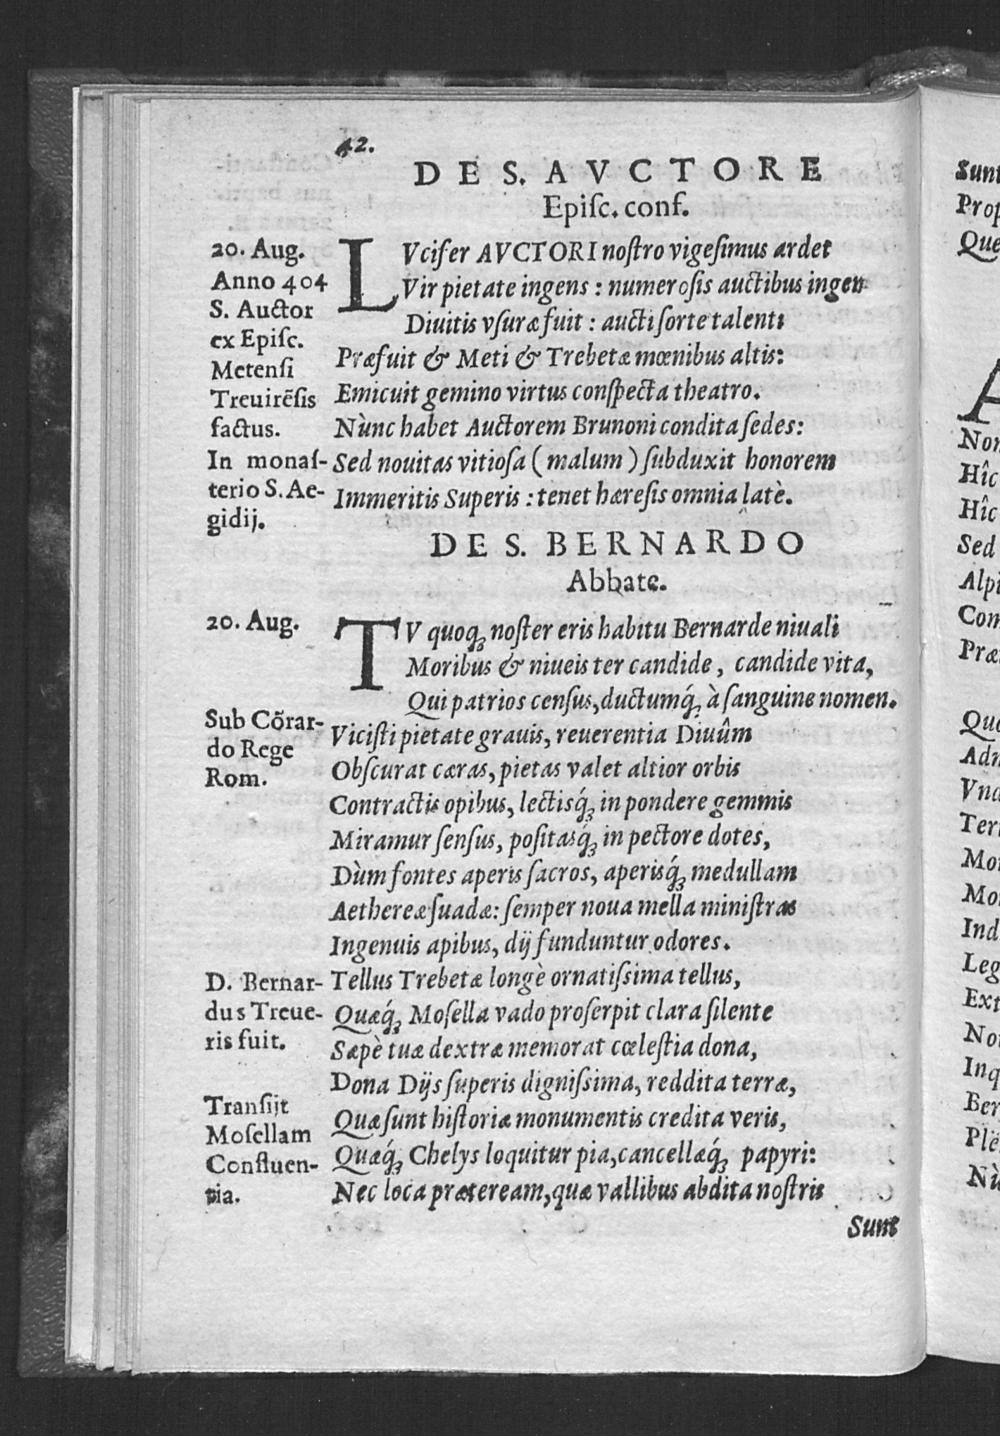 42.
DE S. AVCTORE
Epiſc. conf.
20. Aug.
Anno 404
S. Auctor
ex Epiſc.
Metenſi
Treuirẽſis
factus.
In monaſ-
terio S. Ae-
gidij.
LVcifer AVCTORI noſtro vigeſimus ardet
Vir pietate ingens : numeroſis auctibus ingens
Diuitis vſuræ fuit : aucti ſorte talenti
Præfuit & Meti & Trebetæ mœnibus altis:
Emicuit gemino virtus conſpecta theatro.
Nùnc habet Auctorem Brunoni condita ſedes:
Sed nouitas vitioſa ( malum ) ſubduxit honorem
Immeritis Superis : tenet hæreſis omnia latè.
DE S. BERNARDO
Abbate.
20. Aug.
Sub Cõrar-
do Rege
Rom.
D. Bernar-
dus Treue-
ris fuit.
Tranſijt
Moſellam
Confluen-
tia.
TV quoq; noſter eris habitu Bernarde niuali
Moribus & niueis ter candide, candide vita,
Qui patrios cenſus, ductumq́; à ſanguine nomen.
Viciſti pietate grauis, reuerentia Diuûm
Obſcurat cæras, pietas valet altior orbis
Contractis opibus, lectisq́; in pondere gemmis
Miramur ſenſus, poſitasq́; in pectore dotes,
Dùm fontes aperis ſacros, aperisq́; medullam
Aethereæ ſuadæ: ſemper noua mella miniſtras
Ingenuis apibus, dij funduntur odores.
Tellus Trebetæ longè ornatiſsima tellus,
Quæq́; Moſella vado proſerpit clara ſilente
Sæpè tuæ dextræ memorat cœleſtia dona,
Dona Dijs ſuperis digniſsima, reddita terræ,
Quæ ſunt hiſtoriæ monumentis credita veris,
Quæq́; Chelys loquitur pia, cancellæq́; papyri:
Nec loca prætereàm, quæ vallibus abdita noſtris
Sunt
Sunt
Prop
Que
A
Non
Hîc
Hîc
Sed
Alpi
Com
Præ
Quo
Adn
Vna
Terr
Mo
Mo
Ind
Leg
Ext
No
Inq
Ber
Plê
Nù